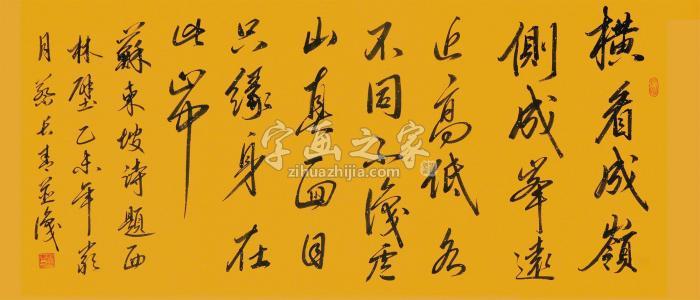 横看成嶺
側成峯遠
近高低各
不同不識庐
山真面目
只緣身在
此山中
蘇東坡诗題西
林壁乙未年
月蔡長青並識
字画之家
zihuazhijia.com